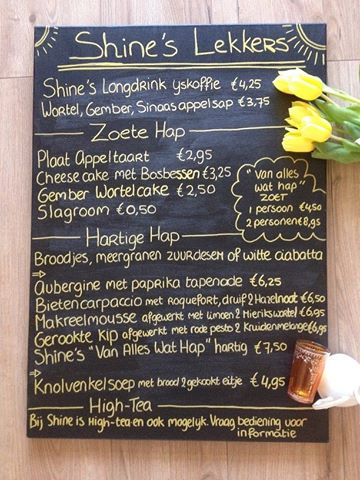 Shine's Lekkers
Shine's Longdrink ijskoffie €4,25
Wortel, Gember, Sinaasappelsap €3,75
Zoete Hap
Plaat Appeltaart €2,95
Cheesecake met Bosbessen €3,25
Gember Wortelcake €2,50
Slagroom €0,50
"Van alles
wat hap"
ZOET
1 persoon €4,50
2 personen €8,95
Hartige Hap
Broodjes, meergranen zuurdesem of witte ciabatta
⇒
Aubergine met paprika tapenade €6,25
Bietencarpaccio met roquefort, druif & Hazelnoot €6,50
Makreelmousse afgewerkt met limoen & Mierikswortel €6,95
Gerookte Kip afgewerkt met rode pesto & Kruidenmelange €6,95
Shine's "Van Alles Wat Hap" hartig €7,50
⇒
Knolvenkelsoep met brood & gekookt eitje €4,95
High-Tea
Bij Shine is High-tea en ook mogelijk. Vraag bediening voor
informatie